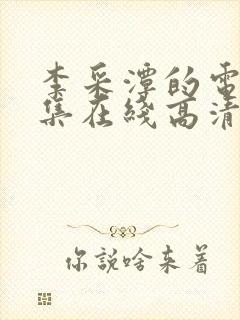 李采潭的電
集在綫高清
你說啥來着